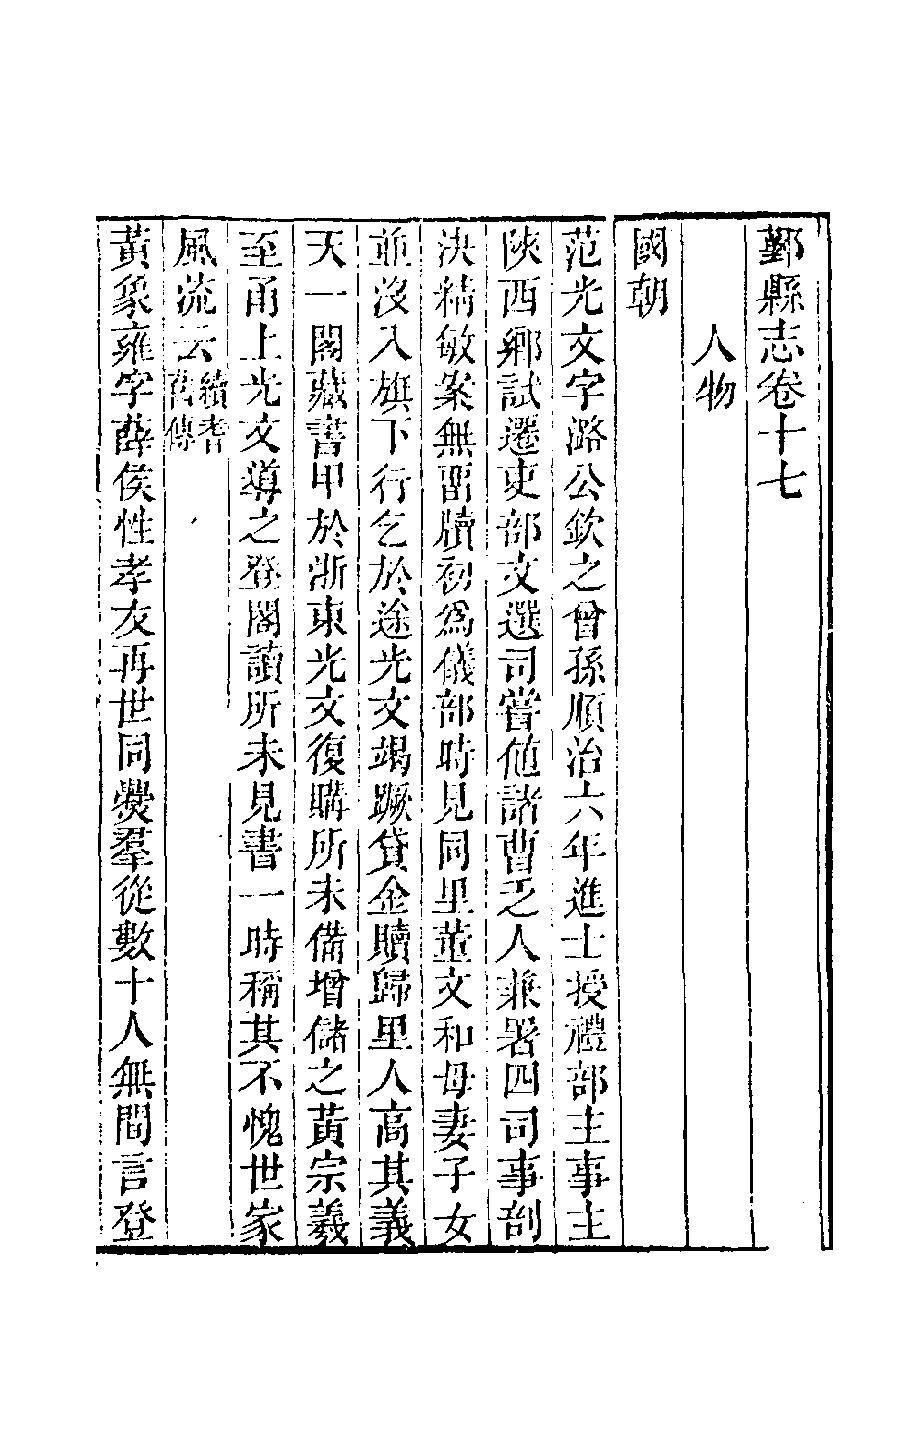 鄞縣志卷十七
人物
國朝
范光文字潞公欽之曾孫順治六年進士授禮部主事主
陝西鄉試遷吏部文選司嘗值諸曹乏人兼署四司事剖
決精敏案無畱牘初為儀部時見同里董文和母妻子女
並沒入旗下行乞於途光文竭蹶貸金贖歸里人高其義
天一閣藏書甲於浙東光文復購所未備增儲之黃宗羲
至甬上光文導之登閣讀所未見書一時稱其不愧世家
風流云續耆舊傳
黃象雍字薛侯性孝友再世同爨羣從數十人無間言登